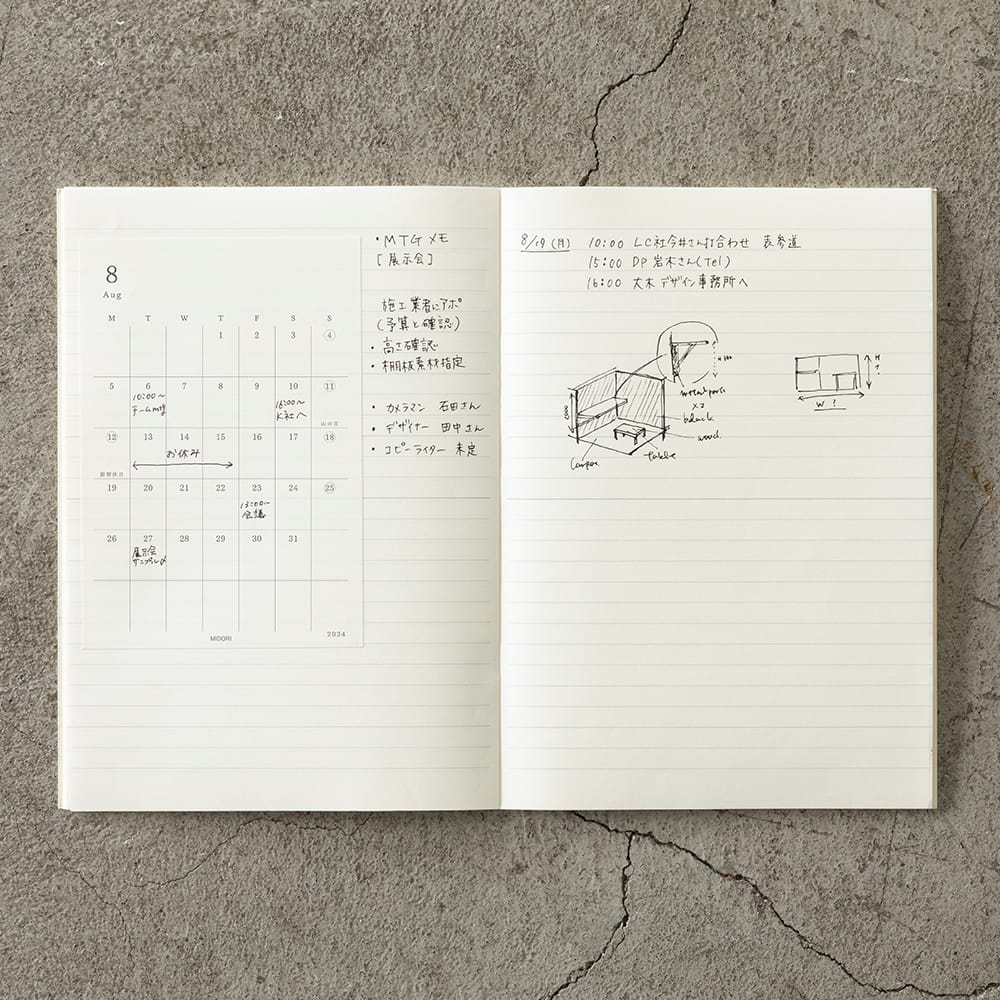 8
Aug
M T W T F S S
1 2 3 4
5 6 7 8 9 10 11
10:00〜
チームMTG
16:00〜
K社へ
山の日
12 13 14 15 16 17 18
お休み
振替休日
19 20 21 22 23 24 25
13:00〜
会議
26 27 28 29 30 31
展示会
サンプル〆
MIDORI
2024
・MTGメモ
[展示会]
施工業者にアポ
(予算と確認)
・高さ確認
・棚板素材指定
・カメラマン 石田さん
・デザイナー 田中さん
・コピーライター 未定
8/19 (月) 10:00 LC社今井さん打合わせ 表参道
15:00 DP岩木さん(Tel)
16:00 大木デザイン事務所へ
×2
black
wood
table
H
?
W ?